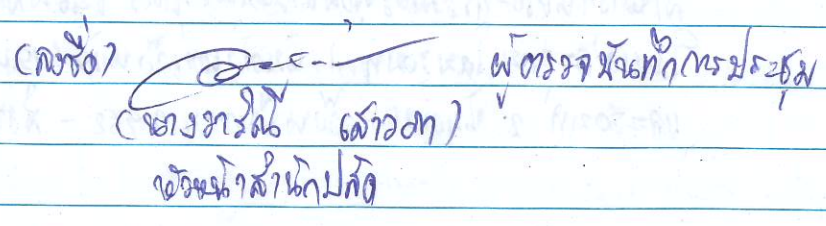 (ลงชื่อ) ผู้ตรวจบันทึกการประชุม
(นางวารินี เสาวภา)
หัวหน้าสำนักปลัด